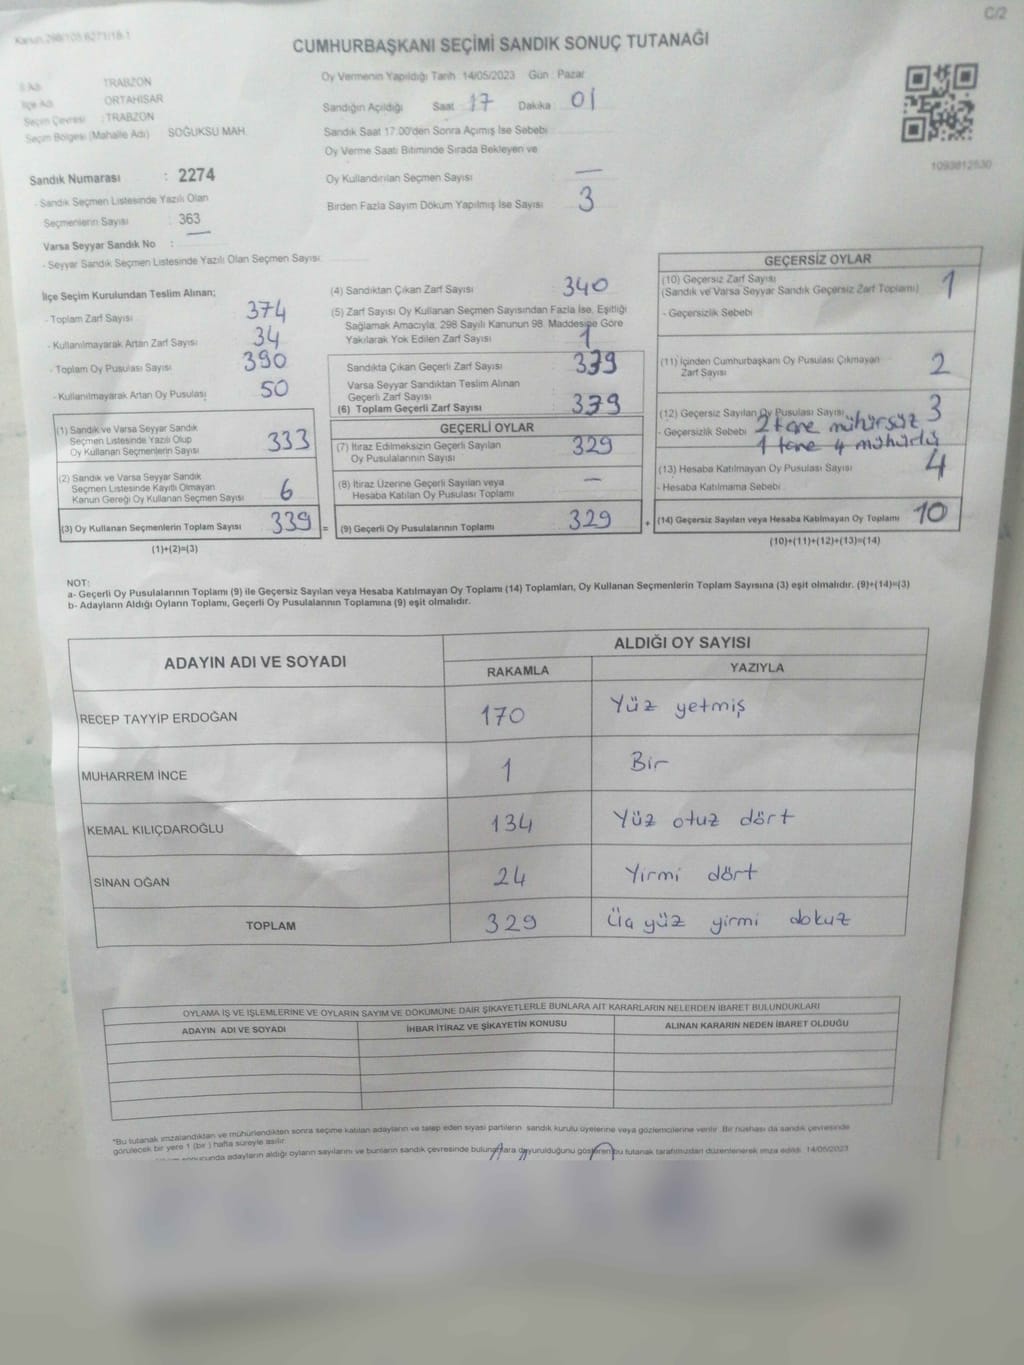 C/2
Kanun 298/105 6271/18-1
CUMHURBAŞKANI SEÇİMİ SANDIK SONUÇ TUTANAĞI
İl Adı TRABZON
İlçe Adı ORTAHİSAR
Seçim Çevresi : TRABZON
Seçim Bölgesi (Mahalle Adı) SOĞUKSU MAH.
Sandık Numarası : 2274
- Sandık Seçmen Listesinde Yazılı Olan
Seçmenlerin Sayısı : 363
Varsa Seyyar Sandık No : —
- Seyyar Sandık Seçmen Listesinde Yazılı Olan Seçmen Sayısı:
Oy Vermenin Yapıldığı Tarih 14/05/2023 Gün : Pazar
Sandığın Açıldığı Saat 17 Dakika 01
Sandık Saat 17.00'den Sonra Açımış İse Sebebi
Oy Verme Saati Bitiminde Sırada Bekleyen ve
Oy Kullandırılan Seçmen Sayısı —
Birden Fazla Sayım Döküm Yapılmış İse Sayısı 3
1093812530
İlçe Seçim Kurulundan Teslim Alınan;
- Toplam Zarf Sayısı 374
- Kullanılmayarak Artan Zarf Sayısı 34
- Toplam Oy Pusulası Sayısı 390
- Kullanılmayarak Artan Oy Pusulası 50
(1) Sandık ve Varsa Seyyar Sandık
Seçmen Listesinde Yazılı Olup
Oy Kullanan Seçmenlerin Sayısı 333
(2) Sandık ve Varsa Seyyar Sandık
Seçmen Listesinde Kayıtlı Olmayan
Kanun Gereği Oy Kullanan Seçmen Sayısı 6
(3) Oy Kullanan Seçmenlerin Toplam Sayısı 339 =
(1)+(2)=(3)
(4) Sandıktan Çıkan Zarf Sayısı 340
(5) Zarf Sayısı Oy Kullanan Seçmen Sayısından Fazla İse, Eşitliği
Sağlamak Amacıyla, 298 Sayılı Kanunun 98. Maddesine Göre
Yakılarak Yok Edilen Zarf Sayısı 1
Sandıkta Çıkan Geçerli Zarf Sayısı 339
Varsa Seyyar Sandıktan Teslim Alınan
Geçerli Zarf Sayısı
(6) Toplam Geçerli Zarf Sayısı 339
GEÇERLİ OYLAR
(7) İtiraz Edilmeksizin Geçerli Sayılan
Oy Pusulalarının Sayısı 329
(8) İtiraz Üzerine Geçerli Sayılan veya
Hesaba Katılan Oy Pusulası Toplamı —
(9) Geçerli Oy Pusulalarının Toplamı 329 +
GEÇERSİZ OYLAR
(10) Geçersiz Zarf Sayısı 1
(Sandık ve Varsa Seyyar Sandık Geçersiz Zarf Toplamı)
- Geçersizlik Sebebi
(11) İçinden Cumhurbaşkanı Oy Pusulası Çıkmayan
Zarf Sayısı 2
(12) Geçersiz Sayılan Oy Pusulası Sayısı 3
- Geçersizlik Sebebi 2 tane mühürsüz
1 tane 4 mühürlü
(13) Hesaba Katılmayan Oy Pusulası Sayısı 4
- Hesaba Katılmama Sebebi
(14) Geçersiz Sayılan veya Hesaba Katılmayan Oy Toplamı 10
(10)+(11)+(12)+(13)=(14)
NOT:
a- Geçerli Oy Pusulalarının Toplamı (9) ile Geçersiz Sayılan veya Hesaba Katılmayan Oy Toplamı (14) Toplamları, Oy Kullanan Seçmenlerin Toplam Sayısına (3) eşit olmalıdır. (9)+(14)=(3)
b- Adayların Aldığı Oyların Toplamı, Geçerli Oy Pusulalarının Toplamına (9) eşit olmalıdır.
ADAYIN ADI VE SOYADI ALDIĞI OY SAYISI
RAKAMLA YAZIYLA
RECEP TAYYİP ERDOĞAN 170 Yüz yetmiş
MUHARREM İNCE 1 Bir
KEMAL KILIÇDAROĞLU 134 Yüz otuz dört
SİNAN OĞAN 24 Yirmi dört
TOPLAM 329 Üç yüz yirmi dokuz
OYLAMA İŞ VE İŞLEMLERİNE VE OYLARIN SAYIM VE DÖKÜMÜNE DAİR ŞİKAYETLERLE BUNLARA AİT KARARLARIN NELERDEN İBARET BULUNDUKLARI
ADAYIN ADI VE SOYADI İHBAR İTİRAZ VE ŞİKAYETİN KONUSU ALINAN KARARIN NEDEN İBARET OLDUĞU
*Bu tutanak imzalandıktan ve mühürlendikten sonra seçime katılan adayların ve talep eden siyasi partilerin sandık kurulu üyelerine veya gözlemcilerine verilir. Bir nüshası da sandık çevresinde
görülecek bir yere 1 (bir) hafta süreyle asılır.
sonucunda adayların aldığı oyların sayılarını ve bunların sandık çevresinde bulunanlara duyurulduğunu gösteren bu tutanak tarafımızdan düzenlenerek imza edildi. 14/05/2023